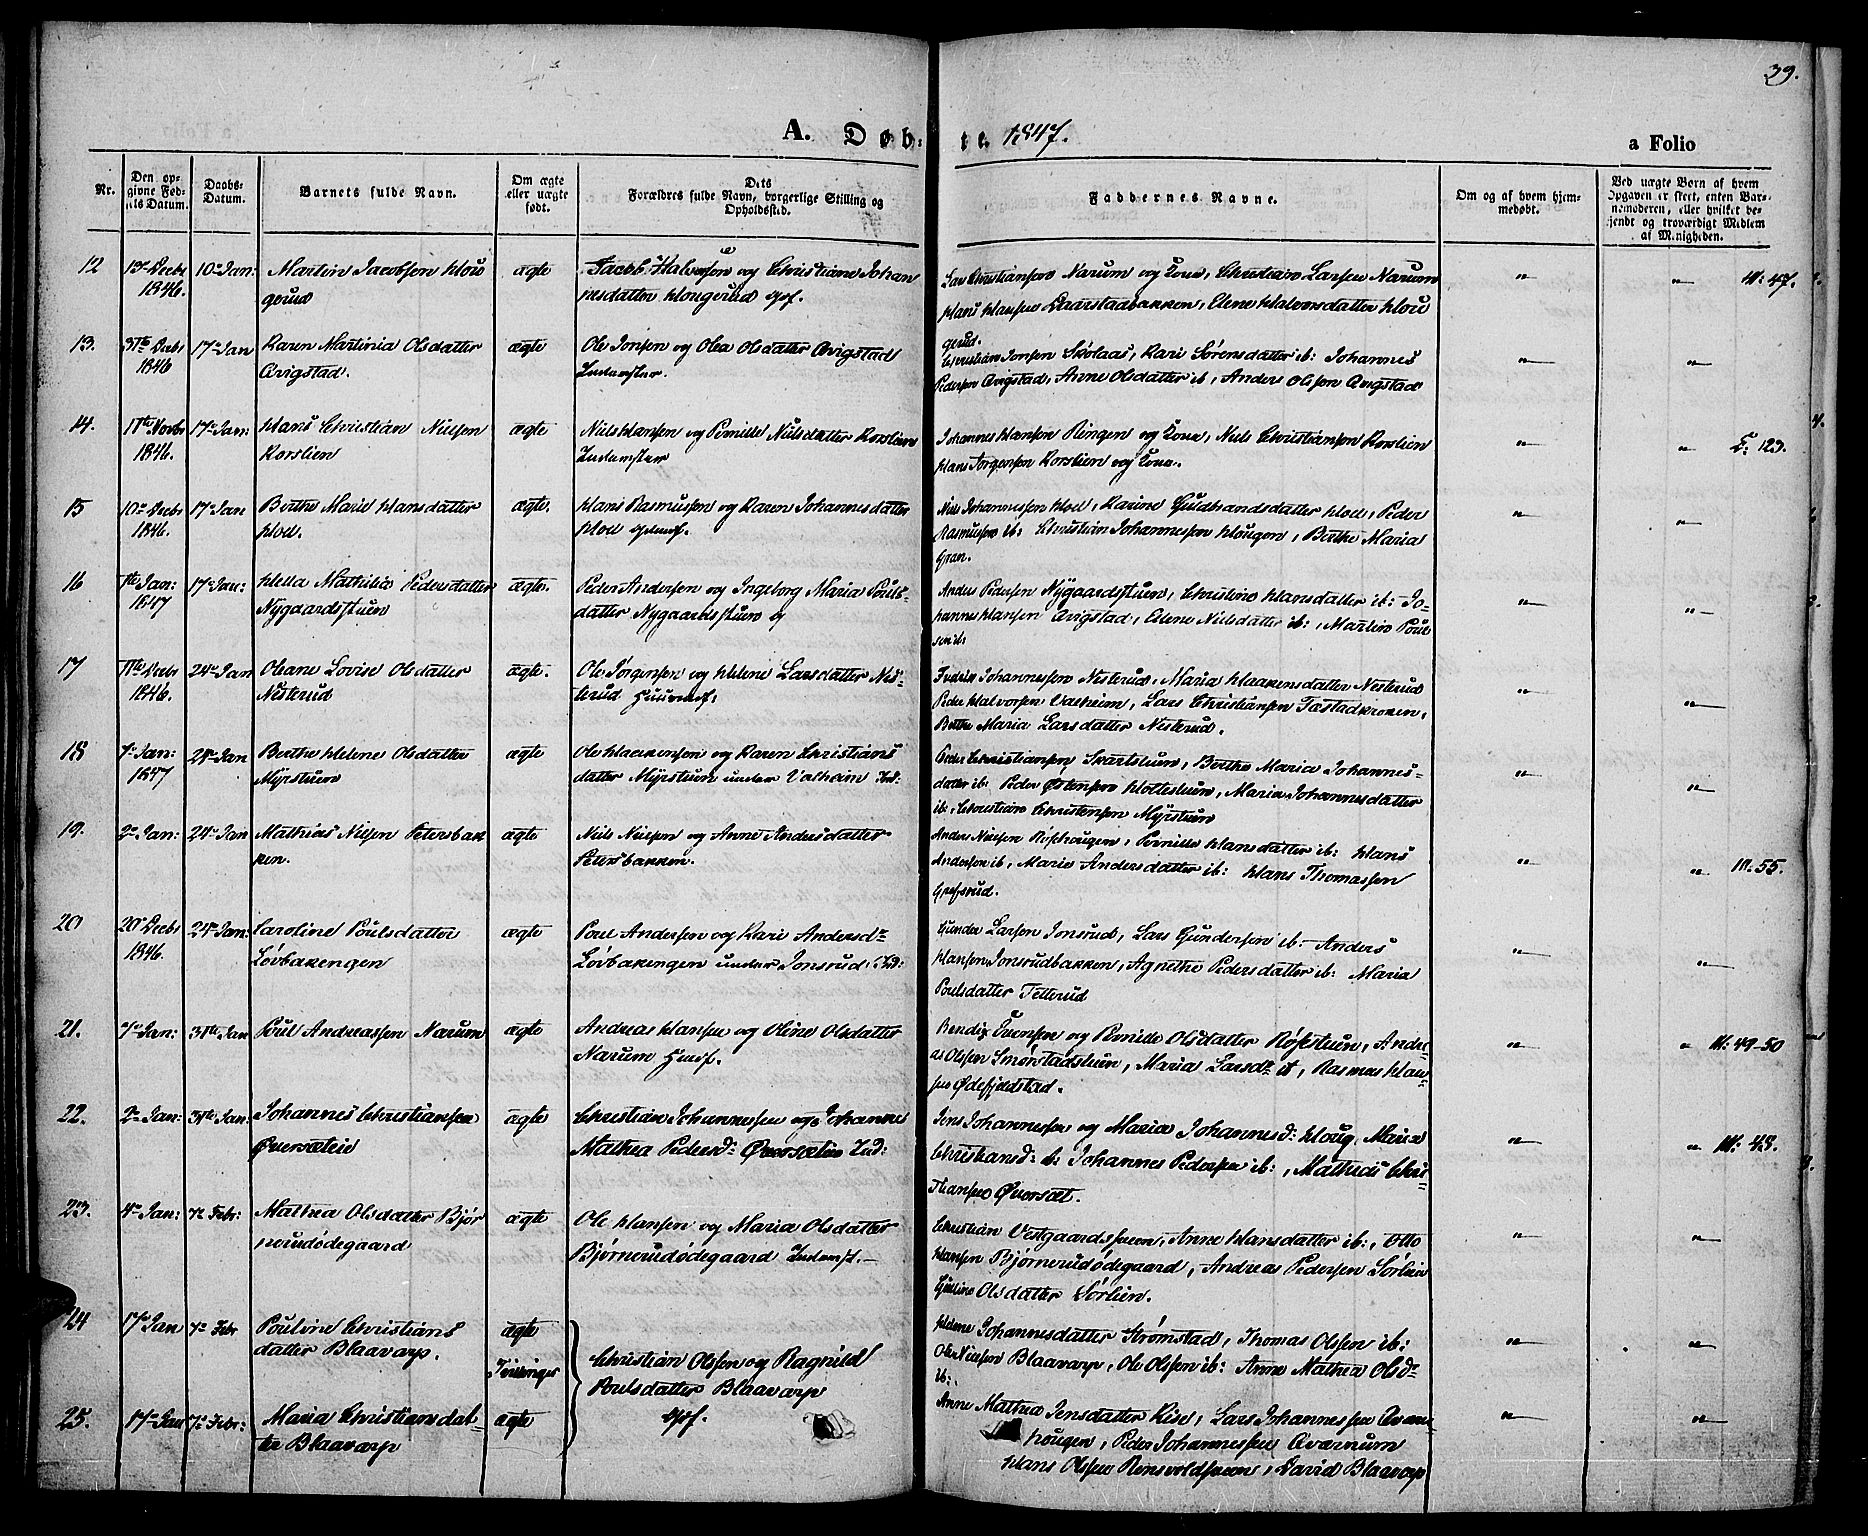 39.
A. Døb: te. 1847.
a Folio
Nr.
Den op-
givne Fød-
sels Datum.
Daabs-
Datum.
Barnets fulde Navn.
Om ægte
eller uægte
født.
Dets
Forældres fulde Navn, borgerlige Stilling og
Opholdssted.
Faddernes Navne.
Om og af hvem hjem-
medøbt.
Ved uægte Børn af hvem
Opgaven er skeet, enten Bar-
nemoderen, eller hvilket be-
kjendt og troværdigt Medlem
af Menigheden.
12 Decbr 1846. 10 Jan: Martin Jacobsen
gerud
ægte
Jacob Halvorsen og Christiane Johan
nesdatter
Lars Christiansen Narum og Kone, Christian Larsen Narum
Hans Hansen Daarstadbakken, Elene Halvorsdatter Hou
gerud.
M: 47.
13. 31te Decbr 1846 17de Jan Karen Martinia Olsdatter
Avigstad.
ægte
Ole Jonsen og Olea Olsdatter Avigstad
Inderster.
Christian Jonsen Skolaas, Kari Sørensdatter ib: Johannes
Pedersen Avigstad, Anne Olsdatter ib, Anders Olsen Avigstad
14. 11te Novbr 1846. 17de Jan: Hans Christian Nielsen
Korslien
ægte
Niels Hansen og Pernille Nielsdatter Korslien
Inderster
Johannes Hansen Ringen og Kone, Niels Christiansen Korslien
Hans Jørgensen Korslien og Kone.
F: 123.
15 10de Decbr 1846. 17de Jan Berthe Marie Hansdatter
Hoel.
ægte.
Hans Rasmussen og Karen Johannesdatter
Hoel
Niels Johannessen Hoel, Karine Gudbrandsdatter Hoel, Peder
Rasmussen ib: Christian Johannessen Hougen, Berthe Maria
Gran.
16 1ste Jan: 1847 17de Jan: Hella Mathilde Pedersdatter
Nygaardsstuen
ægte.
Peder Andersen og Ingeborg Maria Pouls-
datter Nygaardsstuen
Anders Pedersen Nygaardstuen, Christine Hansdatter ib: Jo-
hannes Hansen Avigstad, Elene Nielsdatter ib:, Martin Poul
sen ib:
17 11te Decbr 1846. 24de Jan Oleane Lovise Olsdatter
Nesterud
ægte.
Ole Jørgensen og Helene Larsdatter Nes-
terud Huusmf.
Johannessen Nesterud, Maria Haakensdatter Nesterud
Peder Halvorsen Valheim, Lars Christiansen Tæstadkroken,
Berthe Maria Larsdatter Nesterud.
18 7de Jan: 1847 24de Jan Berthe Helene Olsdatter
Myrstuen
ægte
Ole Haakensen og Karen Christians
datter Myrstuen under Valheim Ind:
Peder Christiansen Skartstuen, Berthe Maria Johannes-
datter ib: Peder Østensen Hollestuen, Maria Johannesdatter
ib: Christian Christensen Myrstuen
19. 2de Jan: 24de Jan Mathias Nielsen Petersbak
ken.
ægte
Niels Nielsen og Anne Andersdatter
Petersbakken.
Anders Nielsen Röshaugen, Pernille Hansdatter ib: Hans
Andersen ib, Marie Andersdatter ib: Hans Thomassen
Grefsrud.
M. 55.
20 20de Decbr 1846. 24de Jan: Caroline Poulsdatter
Løvbakengen
ægte
Poul Andersen og Kari Andersd:
Løvbakengen under Jonsrud Ind:
Gunder Larsen Jonsrud, Lars Gundersen ib: Anders
Hansen Jonsrudbakken, Agnethe Pedersdatter ib: Maria
Poulsdatter Tetterud
21. 7de Jan: 31te Jan Poul Andreassen Narum
ægte
Andreas Hansen og Oline Olsdatter
Narum Husf.
Bendix Evensen og Pernille Olsdatter Røsestuen, Andre-
as Olsen Smørstadstuen, Maria Larsd: ib, Rasmus Han-
sen Ødefjeldstad.
M: 49-50
22. 2de Jan: 31te Jan: Johannes Christiansen
Øversætein
ægte
Christian Johannessen og Johanne
Mathea Pedersd: Øversætein Ind:
Jens Johannessen og Maria Johannesd: Houg, Maria
Christiansd: ib: Johannes Pedersen ib:, Mathias Chris-
tiansen Øversæt.
M: 48.
23. 4de Jan: 7de Febr: Mathea Olsdatter Bjør
nerudødegaard
ægte
Ole Hansen og Maria Olsdatter
Bjørnerudødegaard Inderst.
Christian Vestgaardssveen, Anne Hansdatter ib:, Otto
Hansen Bjørnerudødegaard, Andreas Pedersen Sørlien
Olsdatter Sørlien.
24 17de Jan 7de Febr Pouline Christians
datter Blaavarp.
ægte
Tvillinger
Christian Olsen og Ragnild
Poulsdatter Blaavarp
Helene Johannesdatter Strømstad, Thomas Olsen ib:
Ole Nielsen Blaavarp, Ole Olsen ib: Anne Mathea Olsd:
ib:
25. 17de Jan 7de Febr: Maria Christiansdat-
ter Blaavarp
ægte
Anne Mathea Jensdatter Rise, Lars Johannessen
hougen, Peder Johannessen Aværnum
Hans Olsen Rensvoldsveen, David Blaavarp